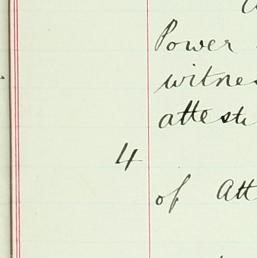 Power
witnes
atteste
4
of Att